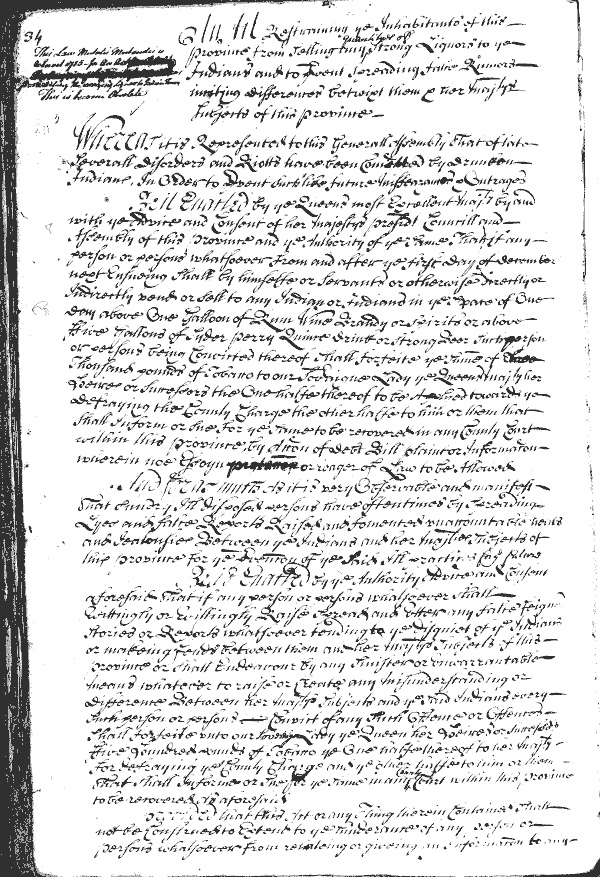 34
This Law Mutatis Mutandis is
This is become Obsolete
An Act Restraining ye Inhabitants of this
Province from Selling any quantitys of Strong Liquors to ye
Indians and to prvent Spreading false Rumors
inciting differences betwixt them & her Majtys
Subjects of this Province
Whereas it is Represented to this Generall Assembly that of late
Severall disorders and Riots have been Comitted by drunken
Indians, In Order to prvent Such like future Outrages
Be it Enacted by ye Queens most Excellent Majty by and
with ye Advice and Consent of her Majestys present Councill and
Assembly of this Province and ye Authority of ye Same That if any
person or persons whatsoever from and after ye first day of December
next Ensueing Shall by himselfe or Servants or otherwise directly or
Indirectly vend or sell to any Indian or Indians in ye Space of One
day above One Galloon of Rum Wine Brandy or Spirits or above
ffive Gallons of Syder perry Quince drink or Strong Beer Such person
or persons being Convicted thereof Shall forfeite ye Sume of
Thousand pounds of Tobacco to our Sovraigne Lady ye Queens Majty her
Heires or Successors the One halfe thereof to be Applied towards ye
defraying the County Charge the other halfe to him or them that
Shall Inform or Sue for ye Same to be recovered in any County Court
within this province by Action of debt Bill plaint or Information
wherein noe Essoyn or wager of Law to be Allowed
And fforasmuch As it is very Observable and manifest
That divers Ill disposed persons have oftentimes by Spreading
Lyes and false Reports Raised and fomented unaccountable heats
and Jealousies Between ye Indians and her Majties Subjects of
this province for ye prvention of ye Said Ill practices for future
Be it Enacted by ye Authority Advice and Consent
aforesaid That if any person or persons whatsoever shall
Wittingly or Willingly Raise Spread and Utter any false feigned
Stories or Reports whatsoever tending to ye disquiet of ye Indians
or makeing feuds between them and her Majtys Subjects of this
province or Shall Endeavour by any Sinister or unwarrantable
means whatever to raise or Create any misunderstanding or
difference Between her Majtys Subjects and ye said Indians every
Such person or persons Convict of any Such Offence or Offences
Shall forfeite unto our Sovraign Lady ye Queen her Heires or Successors
ffive Hundred pounds of Tobacco ye One halfe thereof to her Majty
for defraying ye County Charge and ye other halfe to him or them
That Shall Informe or Sue for ye Same in any County Court within this province
to be recovered As aforesaid
Provided that this Act or any Thing therein Contained Shall
not be Construed to Extend to ye hinderance of any person or
persons whatsoever from revealeing or giveing an Information to any